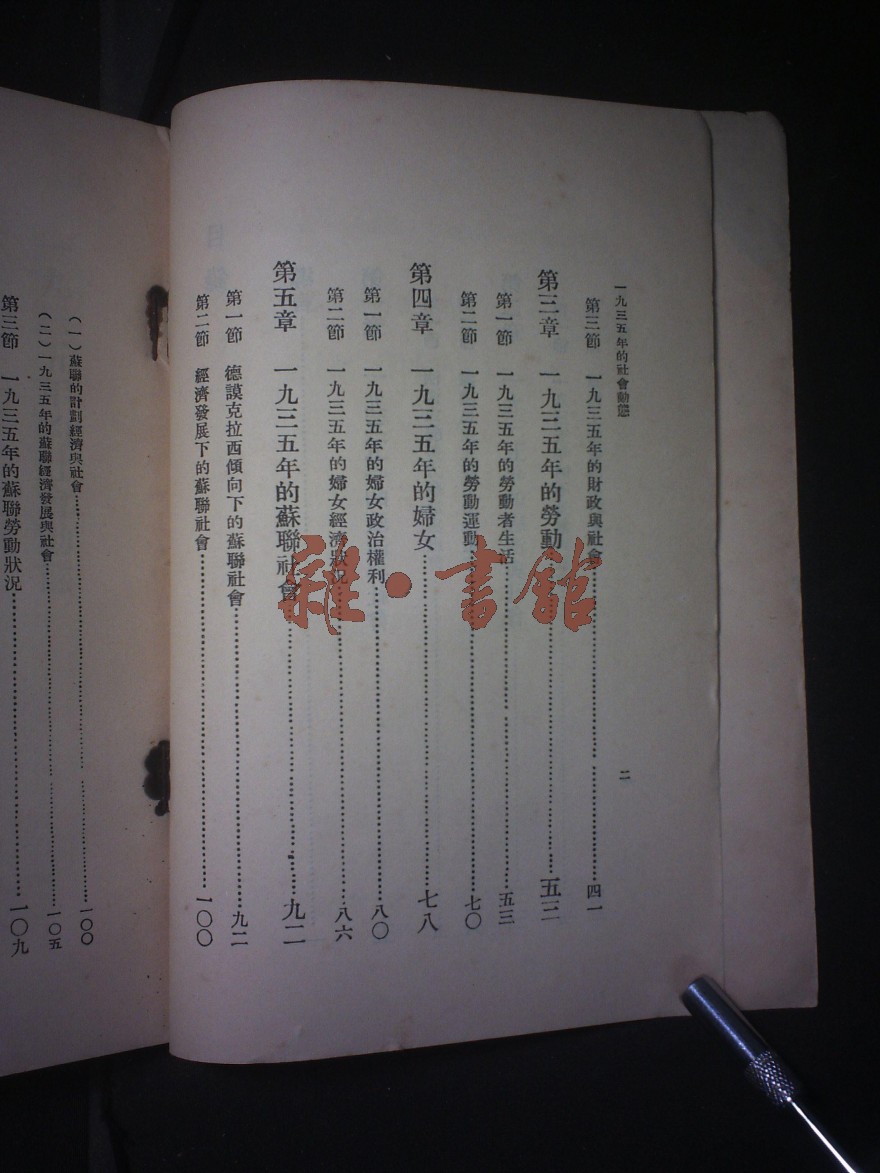 一九三五年的社會動態
二
第三節 一九三五年的財政與社會⋯⋯四一
第三章 一九三五年的勞動⋯⋯五三
第一節 一九三五年的勞動者生活⋯⋯五三
第二節 一九三五年的勞動運動⋯⋯七〇
第四章 一九三五年的婦女⋯⋯七八
第一節 一九三五年的婦女政治權利⋯⋯八〇
第二節 一九三五年的婦女經濟狀況⋯⋯八六
第五章 一九三五年的蘇聯社會⋯⋯九二
第一節 德謨克拉西傾向下的蘇聯社會⋯⋯九二
第二節 經濟發展下的蘇聯社會⋯⋯一〇〇
(一)蘇聯的計劃經濟與社會⋯⋯一〇〇
(二)一九三五年的蘇聯經濟發展與社會⋯⋯一〇五
第三節 一九三五年的蘇聯勞動狀況⋯⋯一〇九
雜·書館